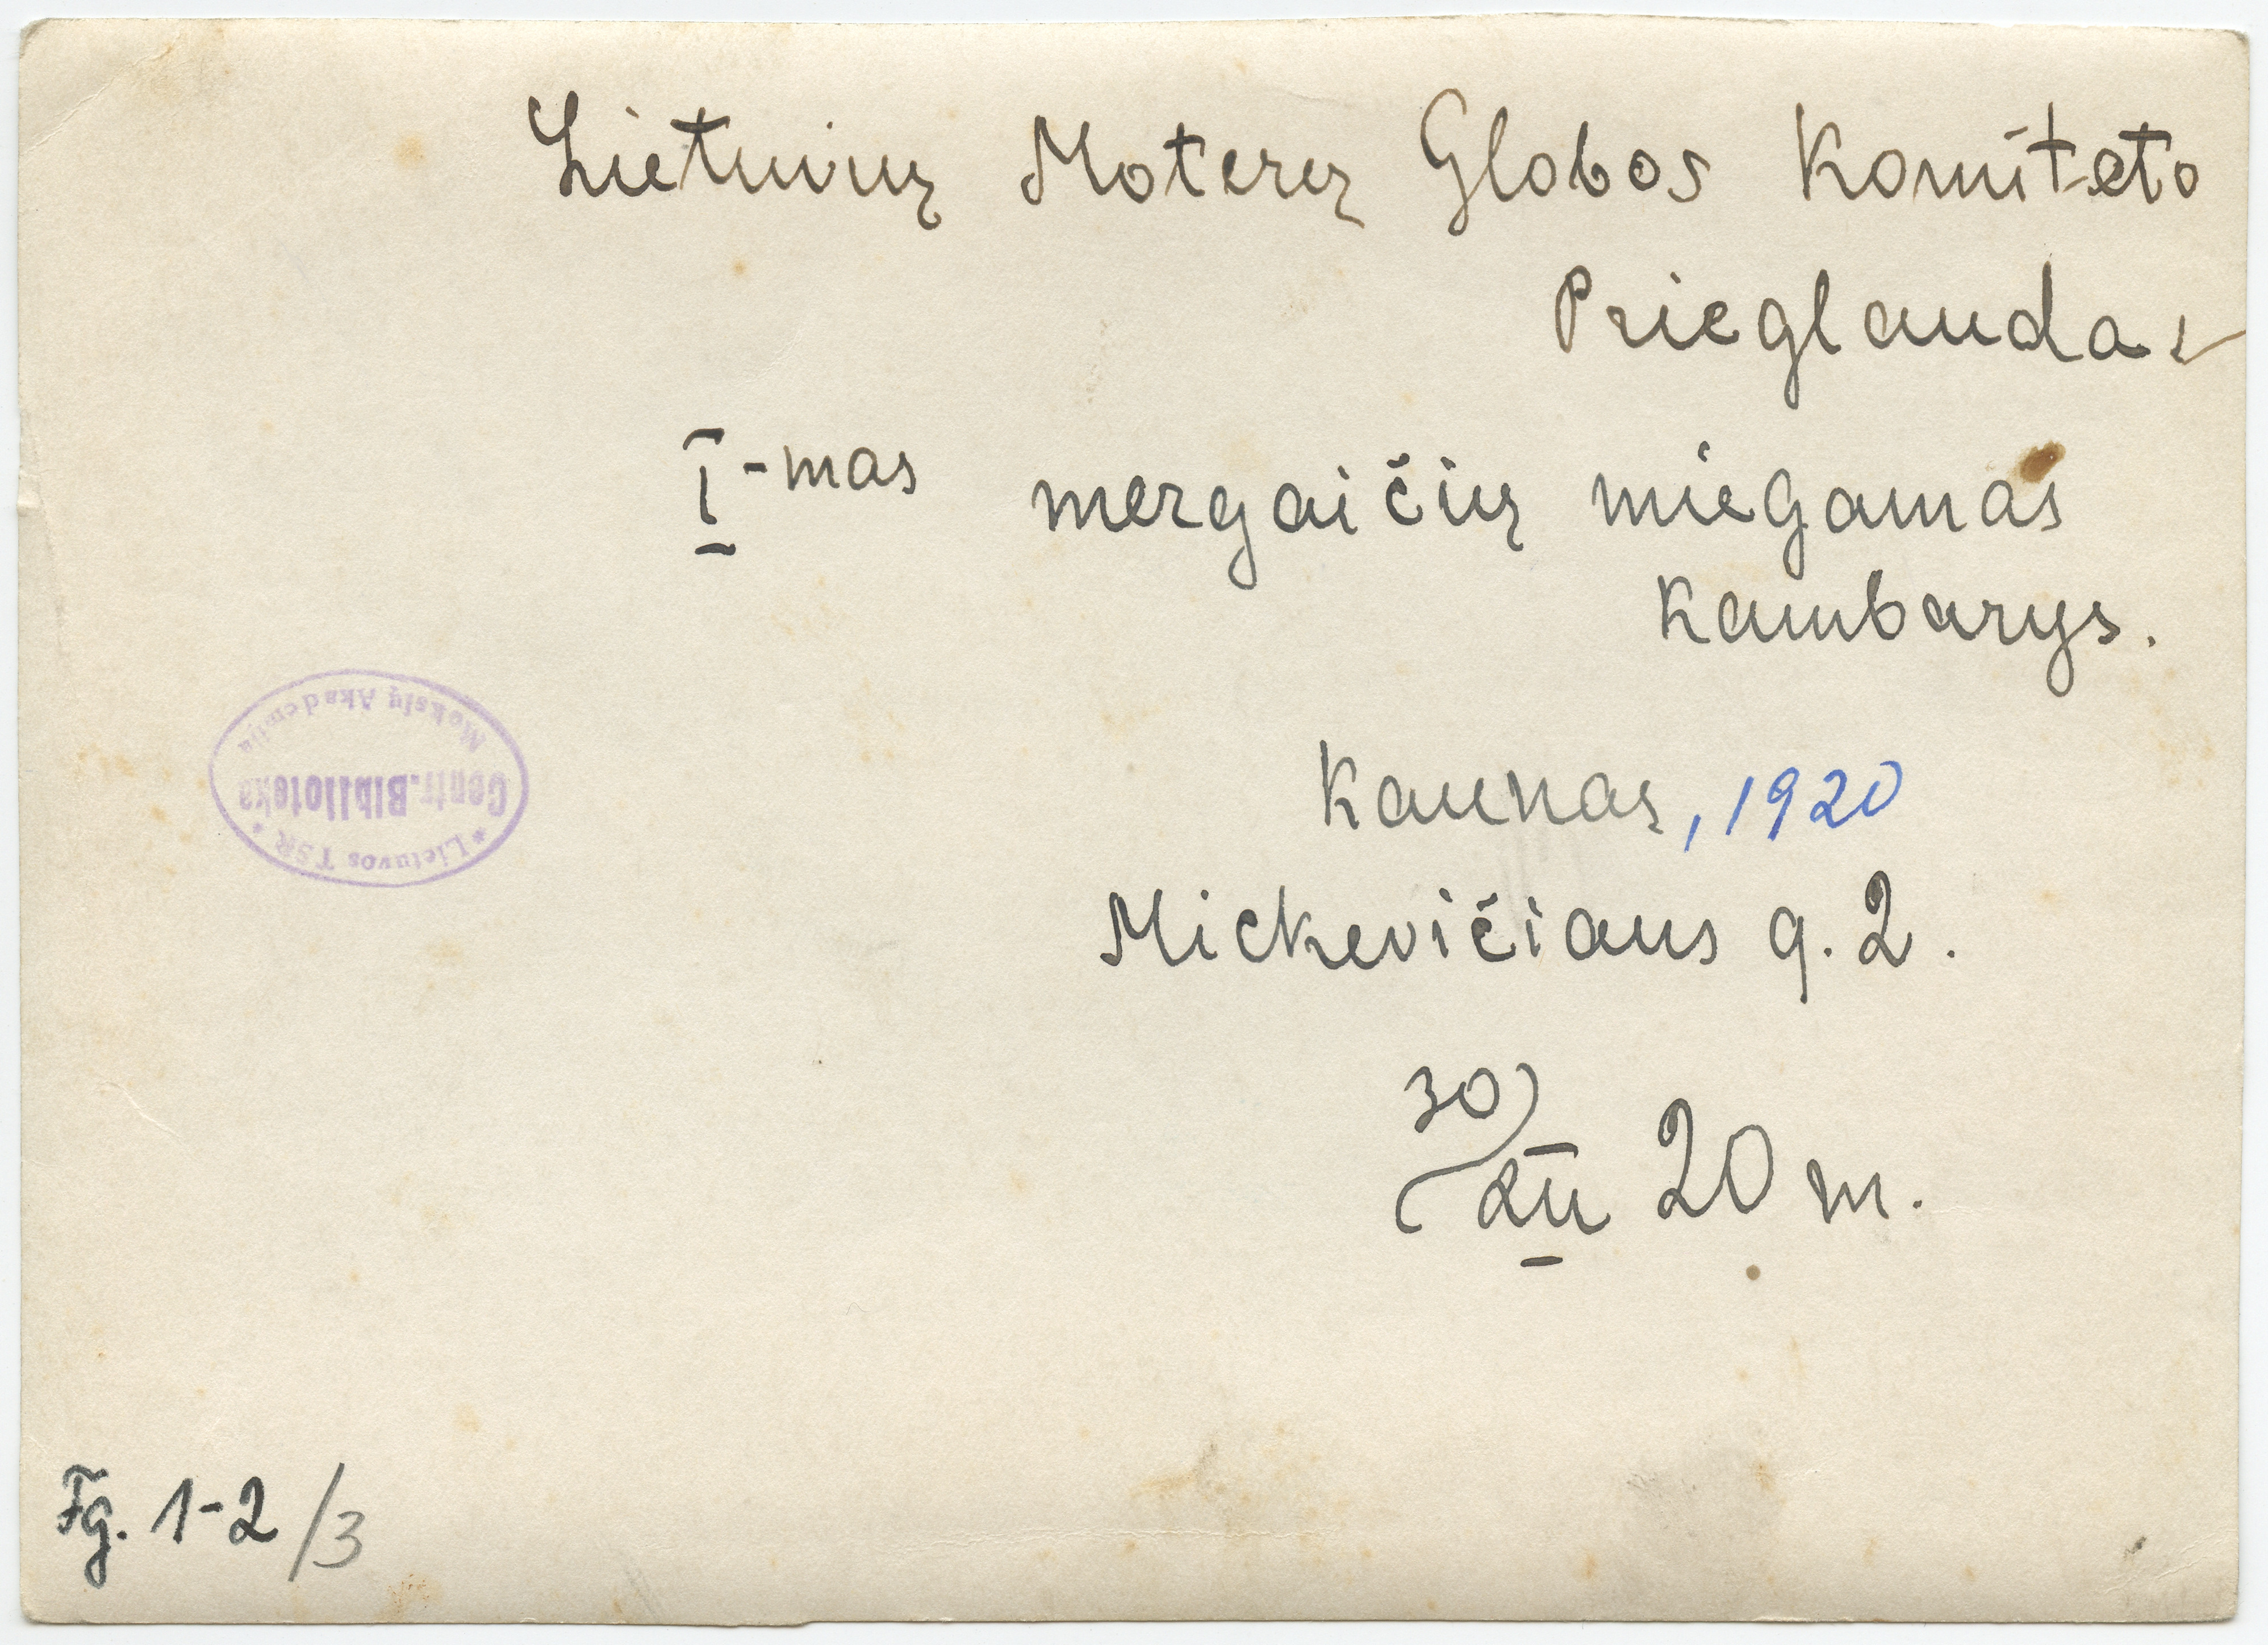 Lietuvių Moterų Globos Komiteto
Prieglauda
I-mas mergaičių miegamas
kambarys.
Kaunas, 1920
Mickevičiaus g. 2.
30/XII 20 m.
* Lietuvos TSR *
Centr. Biblioteka
Mokslų Akademija
Fg. 1-2/3